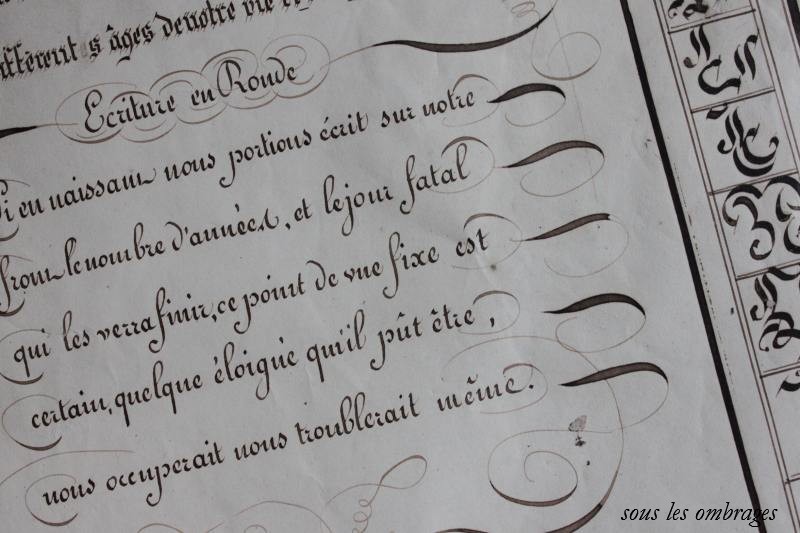 différents âges de notre vie
Ecriture en Ronde
Si en naissant nous portions écrit sur notre
front le nombre d'années, et le jour fatal
qui les verra finir, ce point de vue fixe est
certain, quelque éloigné qu'il pût être,
nous occuperait nous troublerait même.
sous les ombrages